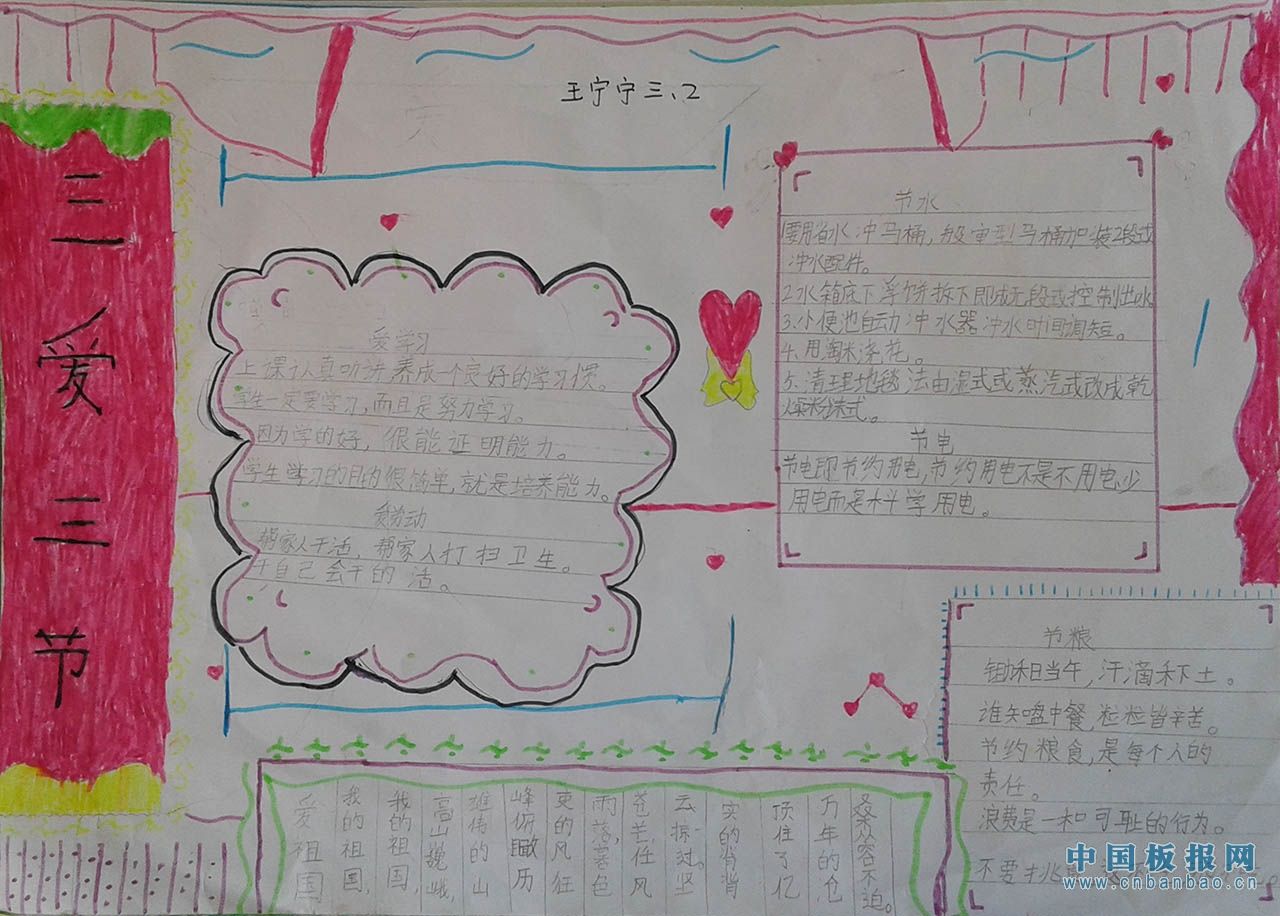 王宁宁三、2
三爱三节
爱学习
上课认真听讲养成一个良好的学习惯。
学生一定要学习,而且是努力学习。
因为学的好,很能证明能力。
学生学习的目的很简单,就是培养能力。
爱劳动
帮家人干活,帮家人打扫卫生。
干自己会干的活。
节水
1要用省水冲马桶,般重型马桶加装2段式
冲水配件。
3.小便池自动冲水器冲水时间调短。
4.用淘米浇花。
5.清理地毯法由湿式或蒸汽式改成乾
燥粉沫式。
节电
节电即节约用电,节约用电不是不用电少
用电而是科学用电。
节粮
锄禾日当午,汗滴禾下土。
谁知盘中餐,粒粒皆辛苦。
节约粮食,是每个人的
责任。
浪费是一种可耻的行为。
不爱挑
爱祖国
我的祖国,
我的祖国,
高山巍峨,
雄伟的山
峰俯瞰历
史的风狂
雨落,暮色
苍茫任风
云掠过。坚
实的脊背
顶住了亿
万年的仓
桑从容不迫。
中国板报网
www.cnbanbao.cn